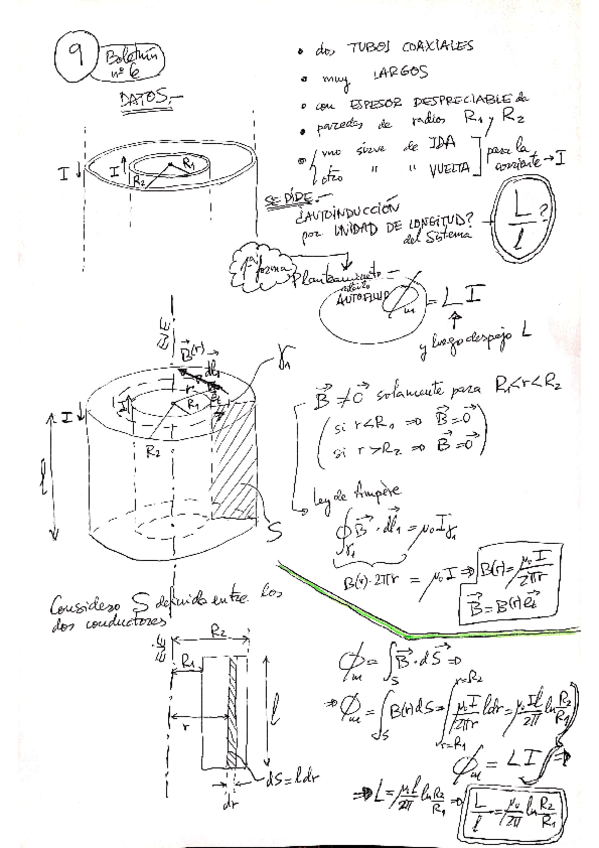 9
Boletín
nº 6
DATOS.-
• dos TUBOS COAXIALES
• muy LARGOS
• con ESPESOR DESPRECIABLE de
• paredes de radios R₁ y R₂
• uno sirve de IDA
otro " " VUELTA
para la
corriente → I
I
I
R₁
R₂
SE PIDE.-
¿AUTOINDUCCIÓN
por UNIDAD DE LONGITUD?
del Sistema
L/l ?
1ª forma
Planteamiento -
AUTOFLUJO
Φm = L I
y luego despejo L
EJE
B⃗(r)
dl₁
γ₁
r
I
I
R₁
R₂
l
S
B⃗ ≠ 0⃗ solamente para R₁<r<R₂
(si r<R₁ ⇒ B⃗=0⃗
si r>R₂ ⇒ B⃗=0⃗)
Ley de Ampère
∮γ₁ B⃗·dl⃗₁ = μ₀ Iγ₁
B(r)·2πr = μ₀I ⇒ B(r) = μ₀I/2πr
Considero S definida entre los
dos conductores
EJE
R₂
R₁
r
l
dS = l dr
dr
Φm = ∫S B⃗·dS⃗ ⇒
⇒ Φm = ∫S B(r)dS = ∫r=R₁ r=R₂ μ₀I/2πr l dr = μ₀Il/2π ln R₂/R₁
Φm = L I ⇒
⇒ L = μ₀l/2π ln R₂/R₁ ⇒ L/l = μ₀/2π ln R₂/R₁